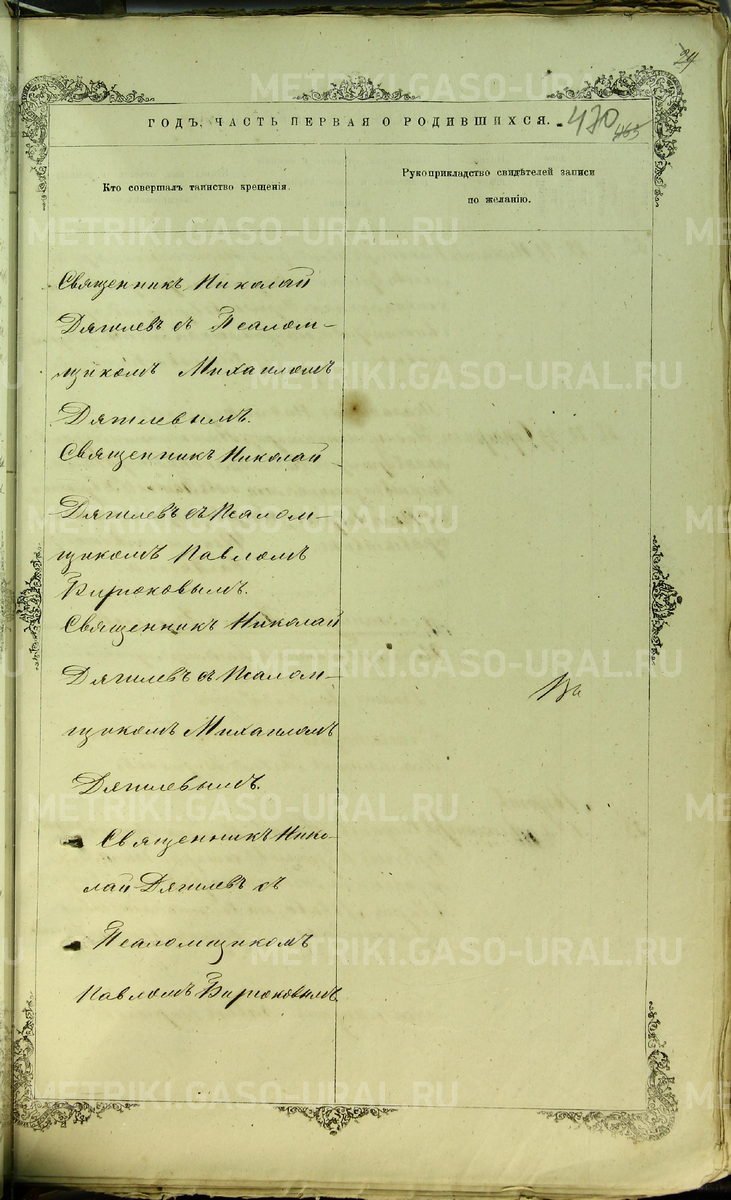 470
ГОДЪ, ЧАСТЬ ПЕРВАЯ О РОДИВШИХСЯ.
Кто совершалъ таинство крещенія.
Рукоприкладство свидѣтелей записи
по желанію.
Священникъ Николай
Дягилевъ съ Псалом-
щикомъ Михаиломъ
Дягилевымъ.
Священникъ Николай
Дягилевъ съ Псалом-
щикомъ Павломъ
Бирюковымъ.
Священникъ Николай
Дягилевъ съ Псалом-
щикомъ Михаиломъ
Дягилевымъ.
Священникъ Нико-
лай Дягилевъ съ
Псаломщикомъ
Павломъ Бирюковымъ
METRIKI.GASO-URAL.RU